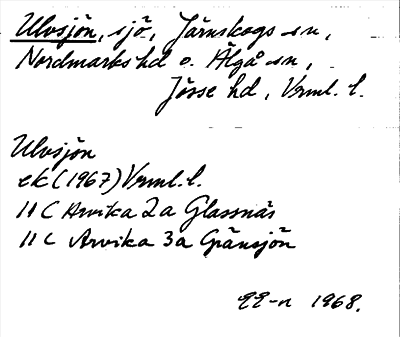 Ulvsjön, sjö, Järnskogs sn,
Nordmarks hd o. Älgå sn,
Jösse hd, Vrml. l.
Ulvsjön
ek (1967) Vrml. l.
11 C Arvika 2a Glassnäs
11 C Arvika 3a Gränsjön
1968.